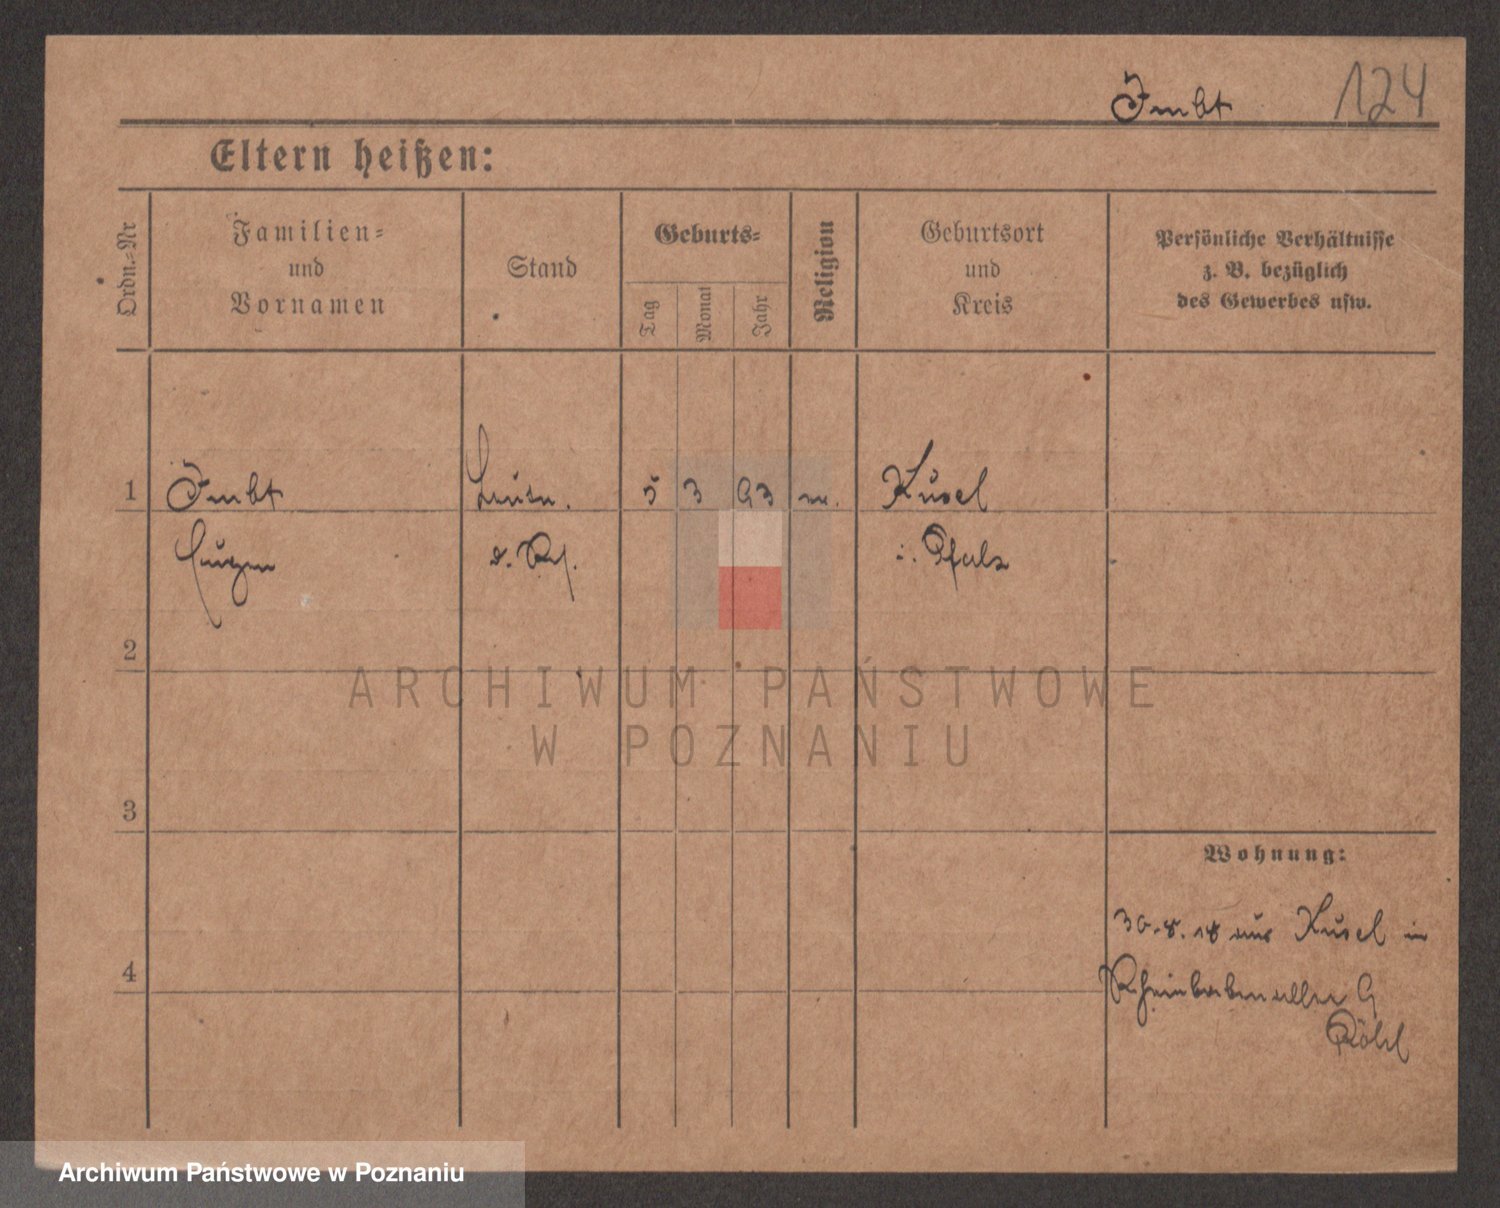 Imbt 124
Eltern heißen:
Ordn.-Nr
Familien-
und
Vornamen
Stand
Geburts-
Tag
Monat
Jahr
Religion
Geburtsort
und
Kreis
Persönliche Verhältnisse
z. B. bezüglich
des Gewerbes usw.
1 Imbt Leutn. 5 3 93 Kusel
Eugen d. Rs. i. Pfalz
2
ARCHIWUM PAŃSTWOWE
W POZNANIU
3
Wohnung:
30.8.18 aus Kusel in
4
Rheinbabenallee 9
Archiwum Państwowe w Poznaniu